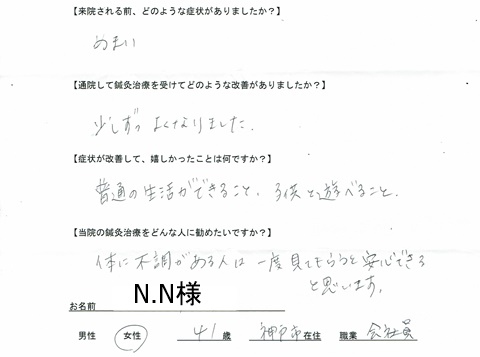 【来院される前、どのような症状がありましたか？】
めまい
【通院して鍼灸治療を受けてどのような改善がありましたか？】
少しずつ よくなりました.
【症状が改善して、嬉しかったことは何ですか？】
普通の生活ができること、子供と遊べること.
【当院の鍼灸治療をどんな人に勧めたいですか？】
体に不調がある人は一度見てもらうと安心できる
と思います。
お名前 N.N様
男性 女性 41歳 神戸市在住 職業 会社員